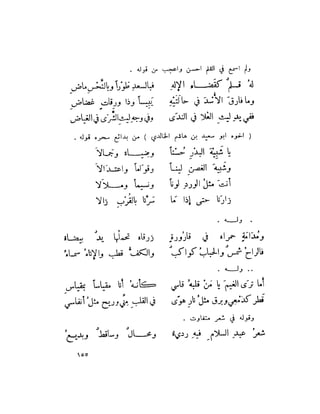 ولم اسمع في القلم احسن واعجب من قوله .
لهُ قلمٌ كقضاء الإلهِ فبالسعدِ طوراً وبالنَّحْسِ ماضِ
وما فارقَ الأُسْدَ في حالَتَيْهِ يَبِيساً وذا ورقاتٍ غضاضِ
ففي يدِ ليثِ العُلا في الندَى وفي وجهِ ليثِ الشَّرَى في الغياضِ
( اخوه ابو سعيد بن هاشم الخالدي ) من بدائع سحره قوله .
يا شَبِيهَ البدْرِ حُسْناً وضِياءً وجَمالاَ
وشبيهَ الغصنِ ليناً وقوَاماً واعتدالاَ
أنت مثلُ الوردِ لوناً ونسيماً ومـــلالاَ
زارَنا حتى إذا ما سَرَّنا بالقُرْبِ زالا
. ولـــه .
ومُدَامَةٍ حمراء في قارورةٍ زرقاء تحملُها يدٌ بيضاءُ
فالراحُ شمسٌ والحَبابُ كواكبٌ والكفُّ قطب والإناءُ سماءُ
.. ولـــه .
أما ترَى الغيمَ يا مَنْ قلبُهُ قاسي كأنــهُ أنا مقياساً بمقياسِ
قَطرٌ كدَمْعي وبرقٌ مثلُ نارِ هوًى في القلبِ مِنِّي وريحٌ مثلُ أنفاسي
وقوله في شعر متفاوت .
شعرُ عبدِ السلامِ فيهِ رديءٌ ومحـــالٌ وساقطٌ وبديـعُ
١٥٥